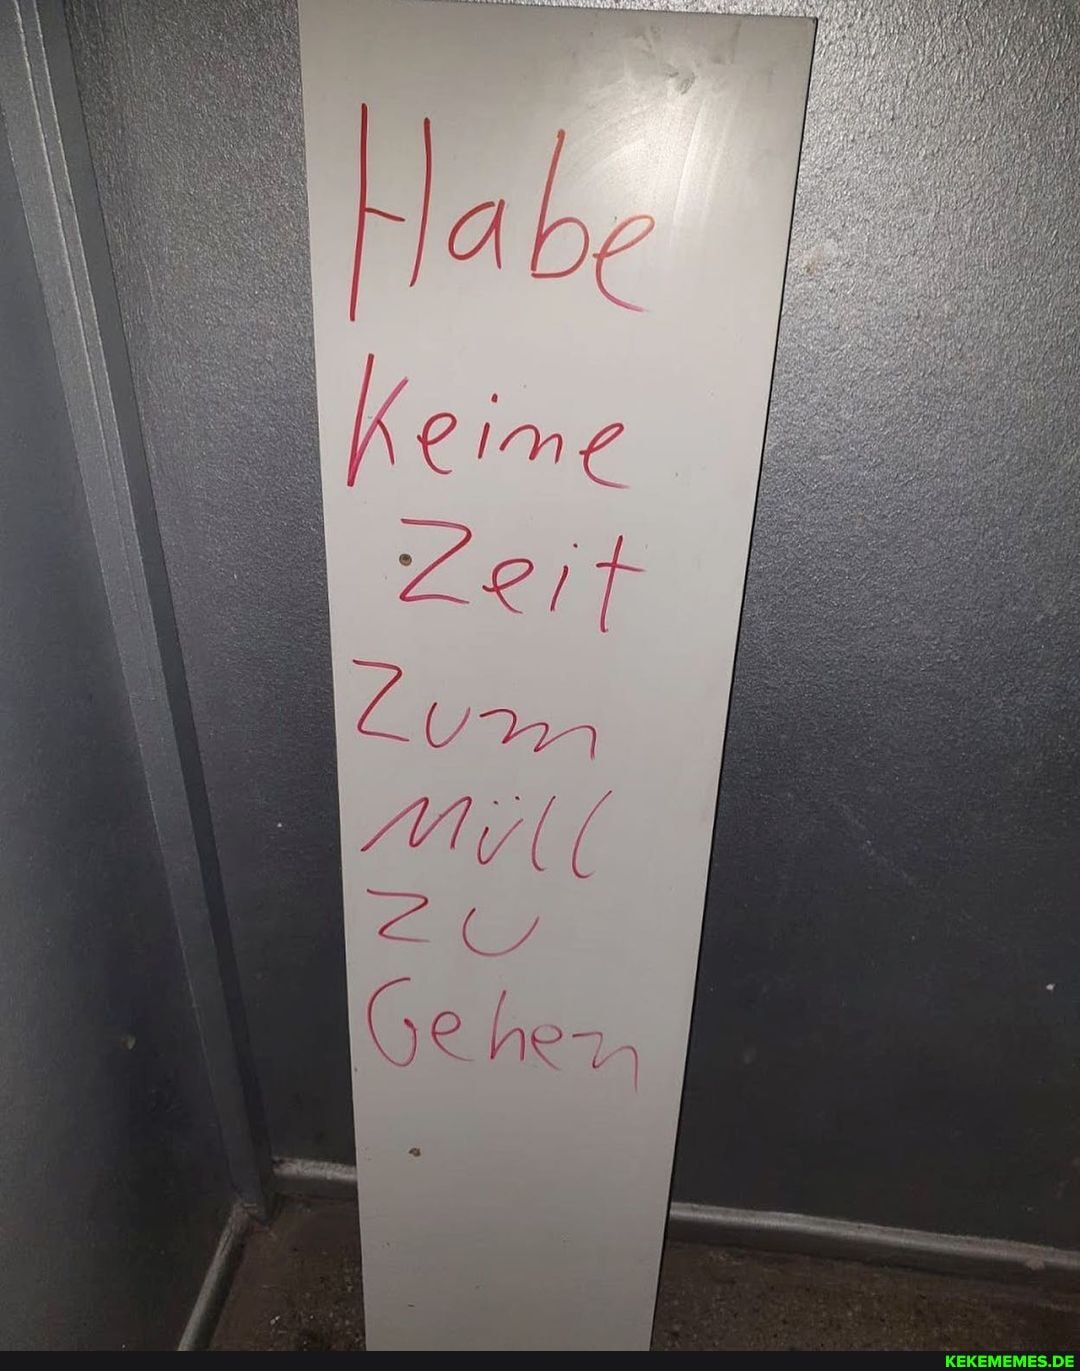 Habe
Keine
Zeit
Zum
Müll
zu
Gehen
KEKEMEMES.DE